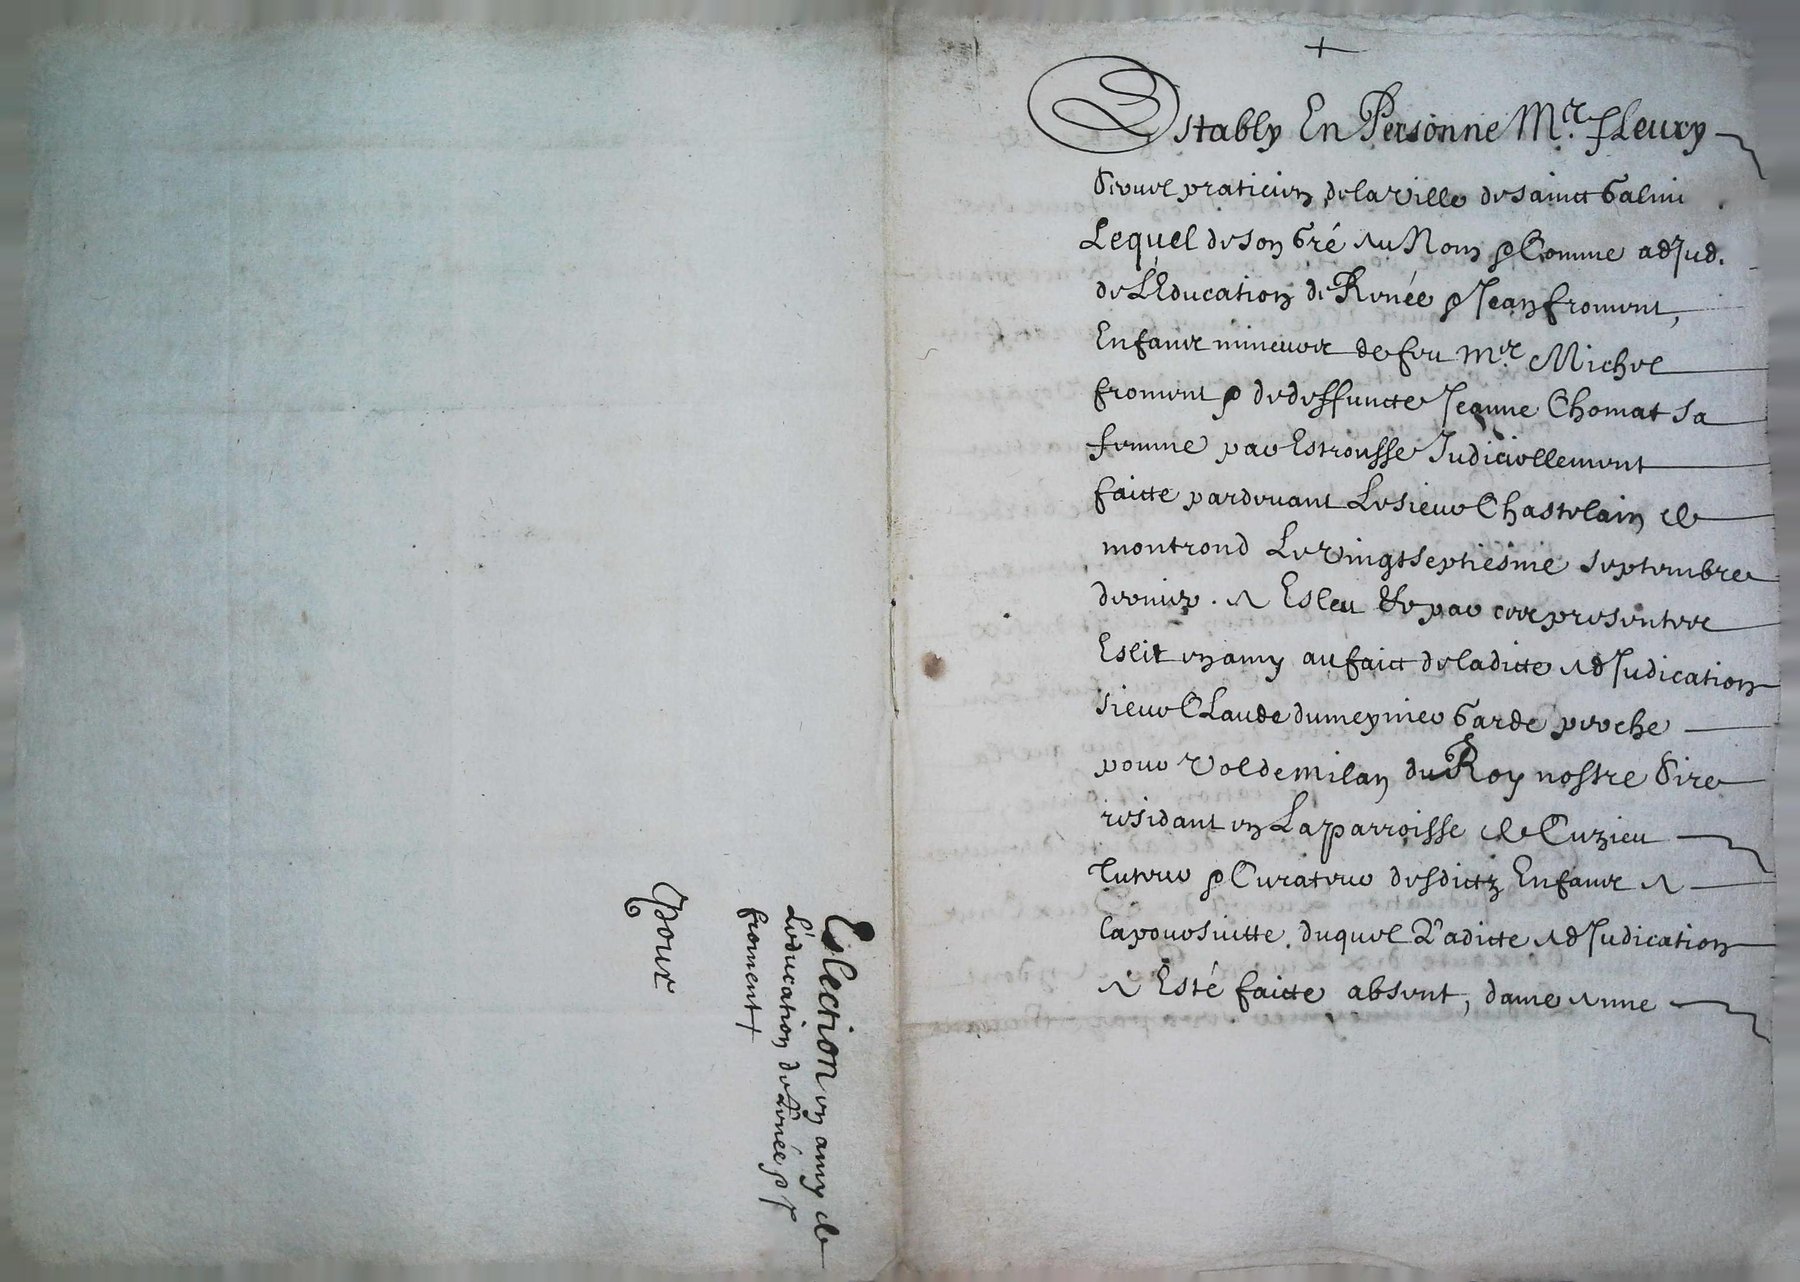 +
Estably En Personne Mr. fleury
praticien de la Ville de sainct Galmi
Lequel de son Gré au Nom & Comme adJud.
de L'Education de Renée & Jean froment,
Enfans mineurs de feu Mr. Michel
froment & de deffuncte Jeanne Chomat sa
femme par Estrousse Judiciellement
faicte pardevant Le sieur Chastelain de
montrond Le Vingtseptiesme septembre
dernier. A Esleu & par ces presentes
Eslit en amy au faict de ladicte AdJudication
sieur CLaude dumeynier Garde proche
pour Vol de milan du Roy nostre Sire
residant en La parroisse de Cuzieu
Tuteur & Curateur desdictz Enfans A
la poursuitte duquel Ladicte AdJudication
A Esté faicte absent, dame Anne
Eslection en amy de
L'éducation de Renée & J
froment +
Pour